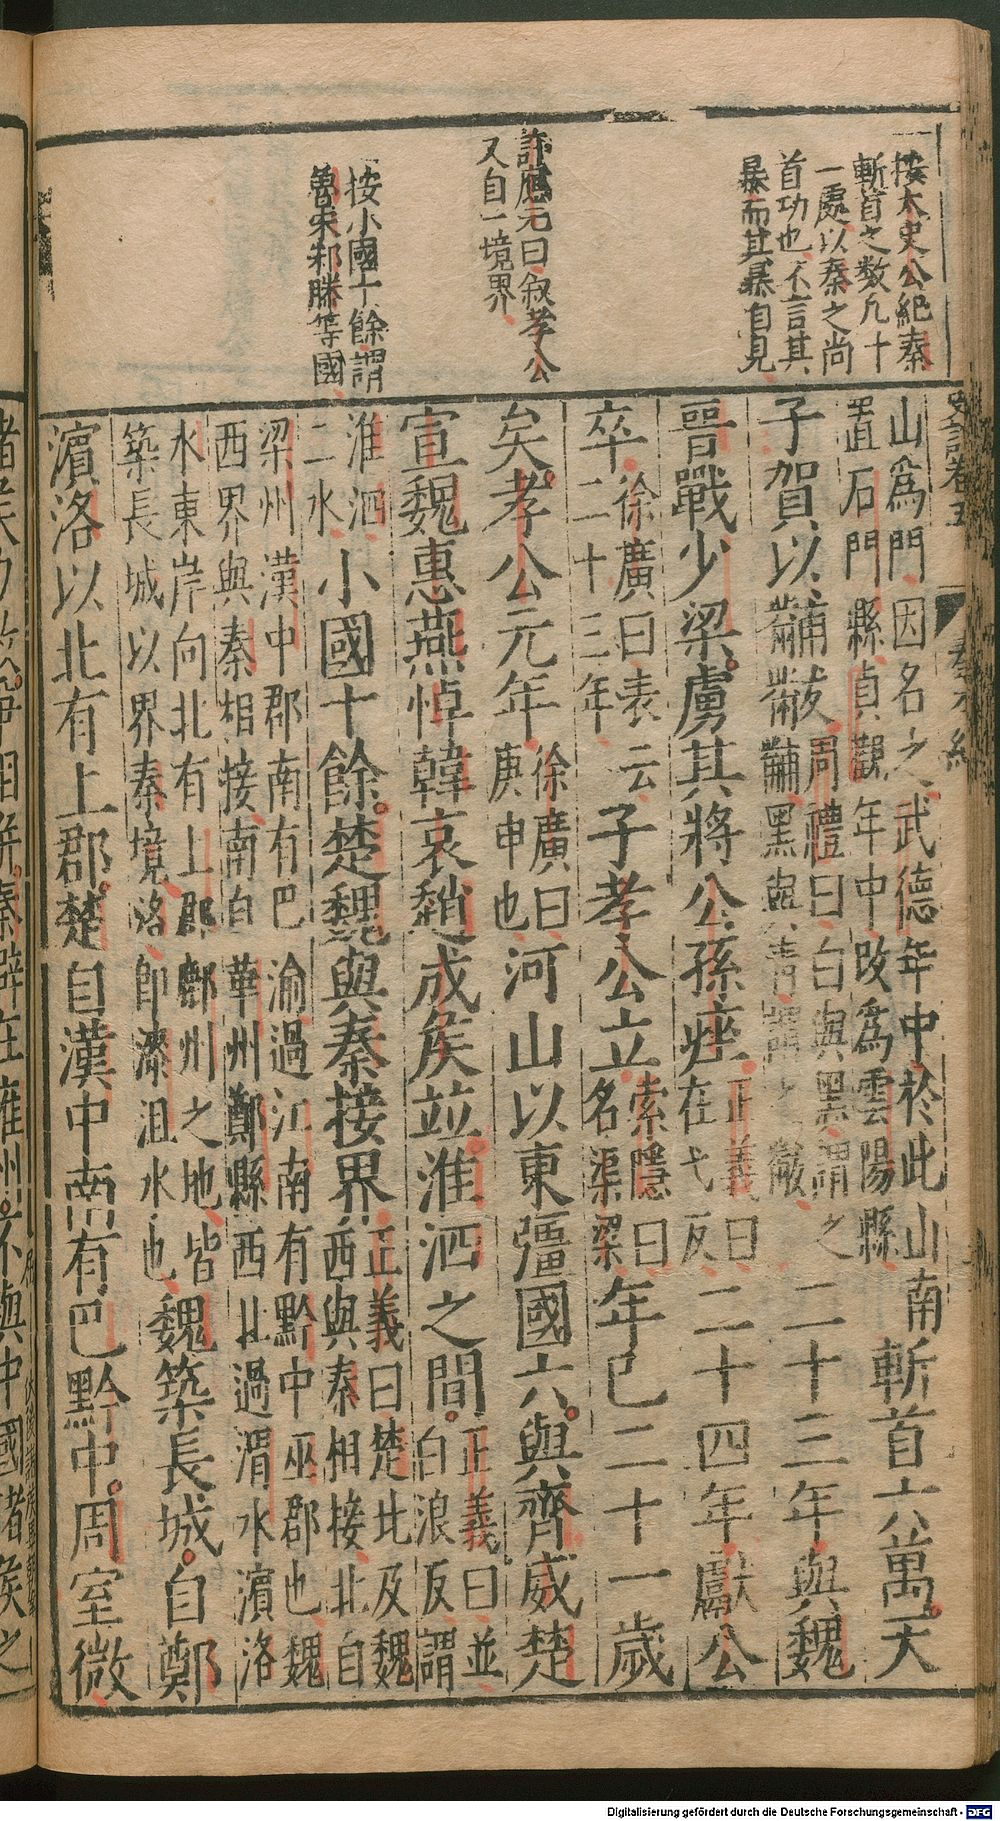 按太史公紀秦
斬首之數凡十
一處以秦之尚
首功也不言其
暴而其暴自見
許應元曰敘孝公
又自一境界
按小國十餘謂
魯宋邾滕等國
史記卷五 秦本紀
山為門因名之武德年中於此山南
置石門縣貞觀年中改為雲陽縣
斬首六萬天
子賀以黼黻
周禮曰白與黑謂之
黼黑與青謂之黻
二十三年與魏
晉戰少梁虜其將公孫痤
正義曰
在戈反
二十四年獻公
卒
徐廣曰表云
二十三年
子孝公立
索隱曰
名渠梁
年已二十一歲
矣孝公元年
徐廣曰
庚申也
河山以東彊國六與齊威楚
宣魏惠燕悼韓哀趙成侯竝淮泗之間
正義曰竝
白浪反謂
淮泗
二水
小國十餘楚魏與秦接界
正義曰楚北及魏
西與秦相接北自
梁州漢中郡南有巴渝過江南有黔中巫郡也魏
西界與秦相接南自華州鄭縣西北過渭水濱洛
水東岸向北有上郡鄜州之地皆
築長城以界秦境洛即漆沮水也
魏築長城自鄭
濱洛以北有上郡楚自漢中南有巴黔中周室微
秦僻在雍州不與中國諸侯之
Digitalisierung gefördert durch die Deutsche Forschungsgemeinschaft - DFG